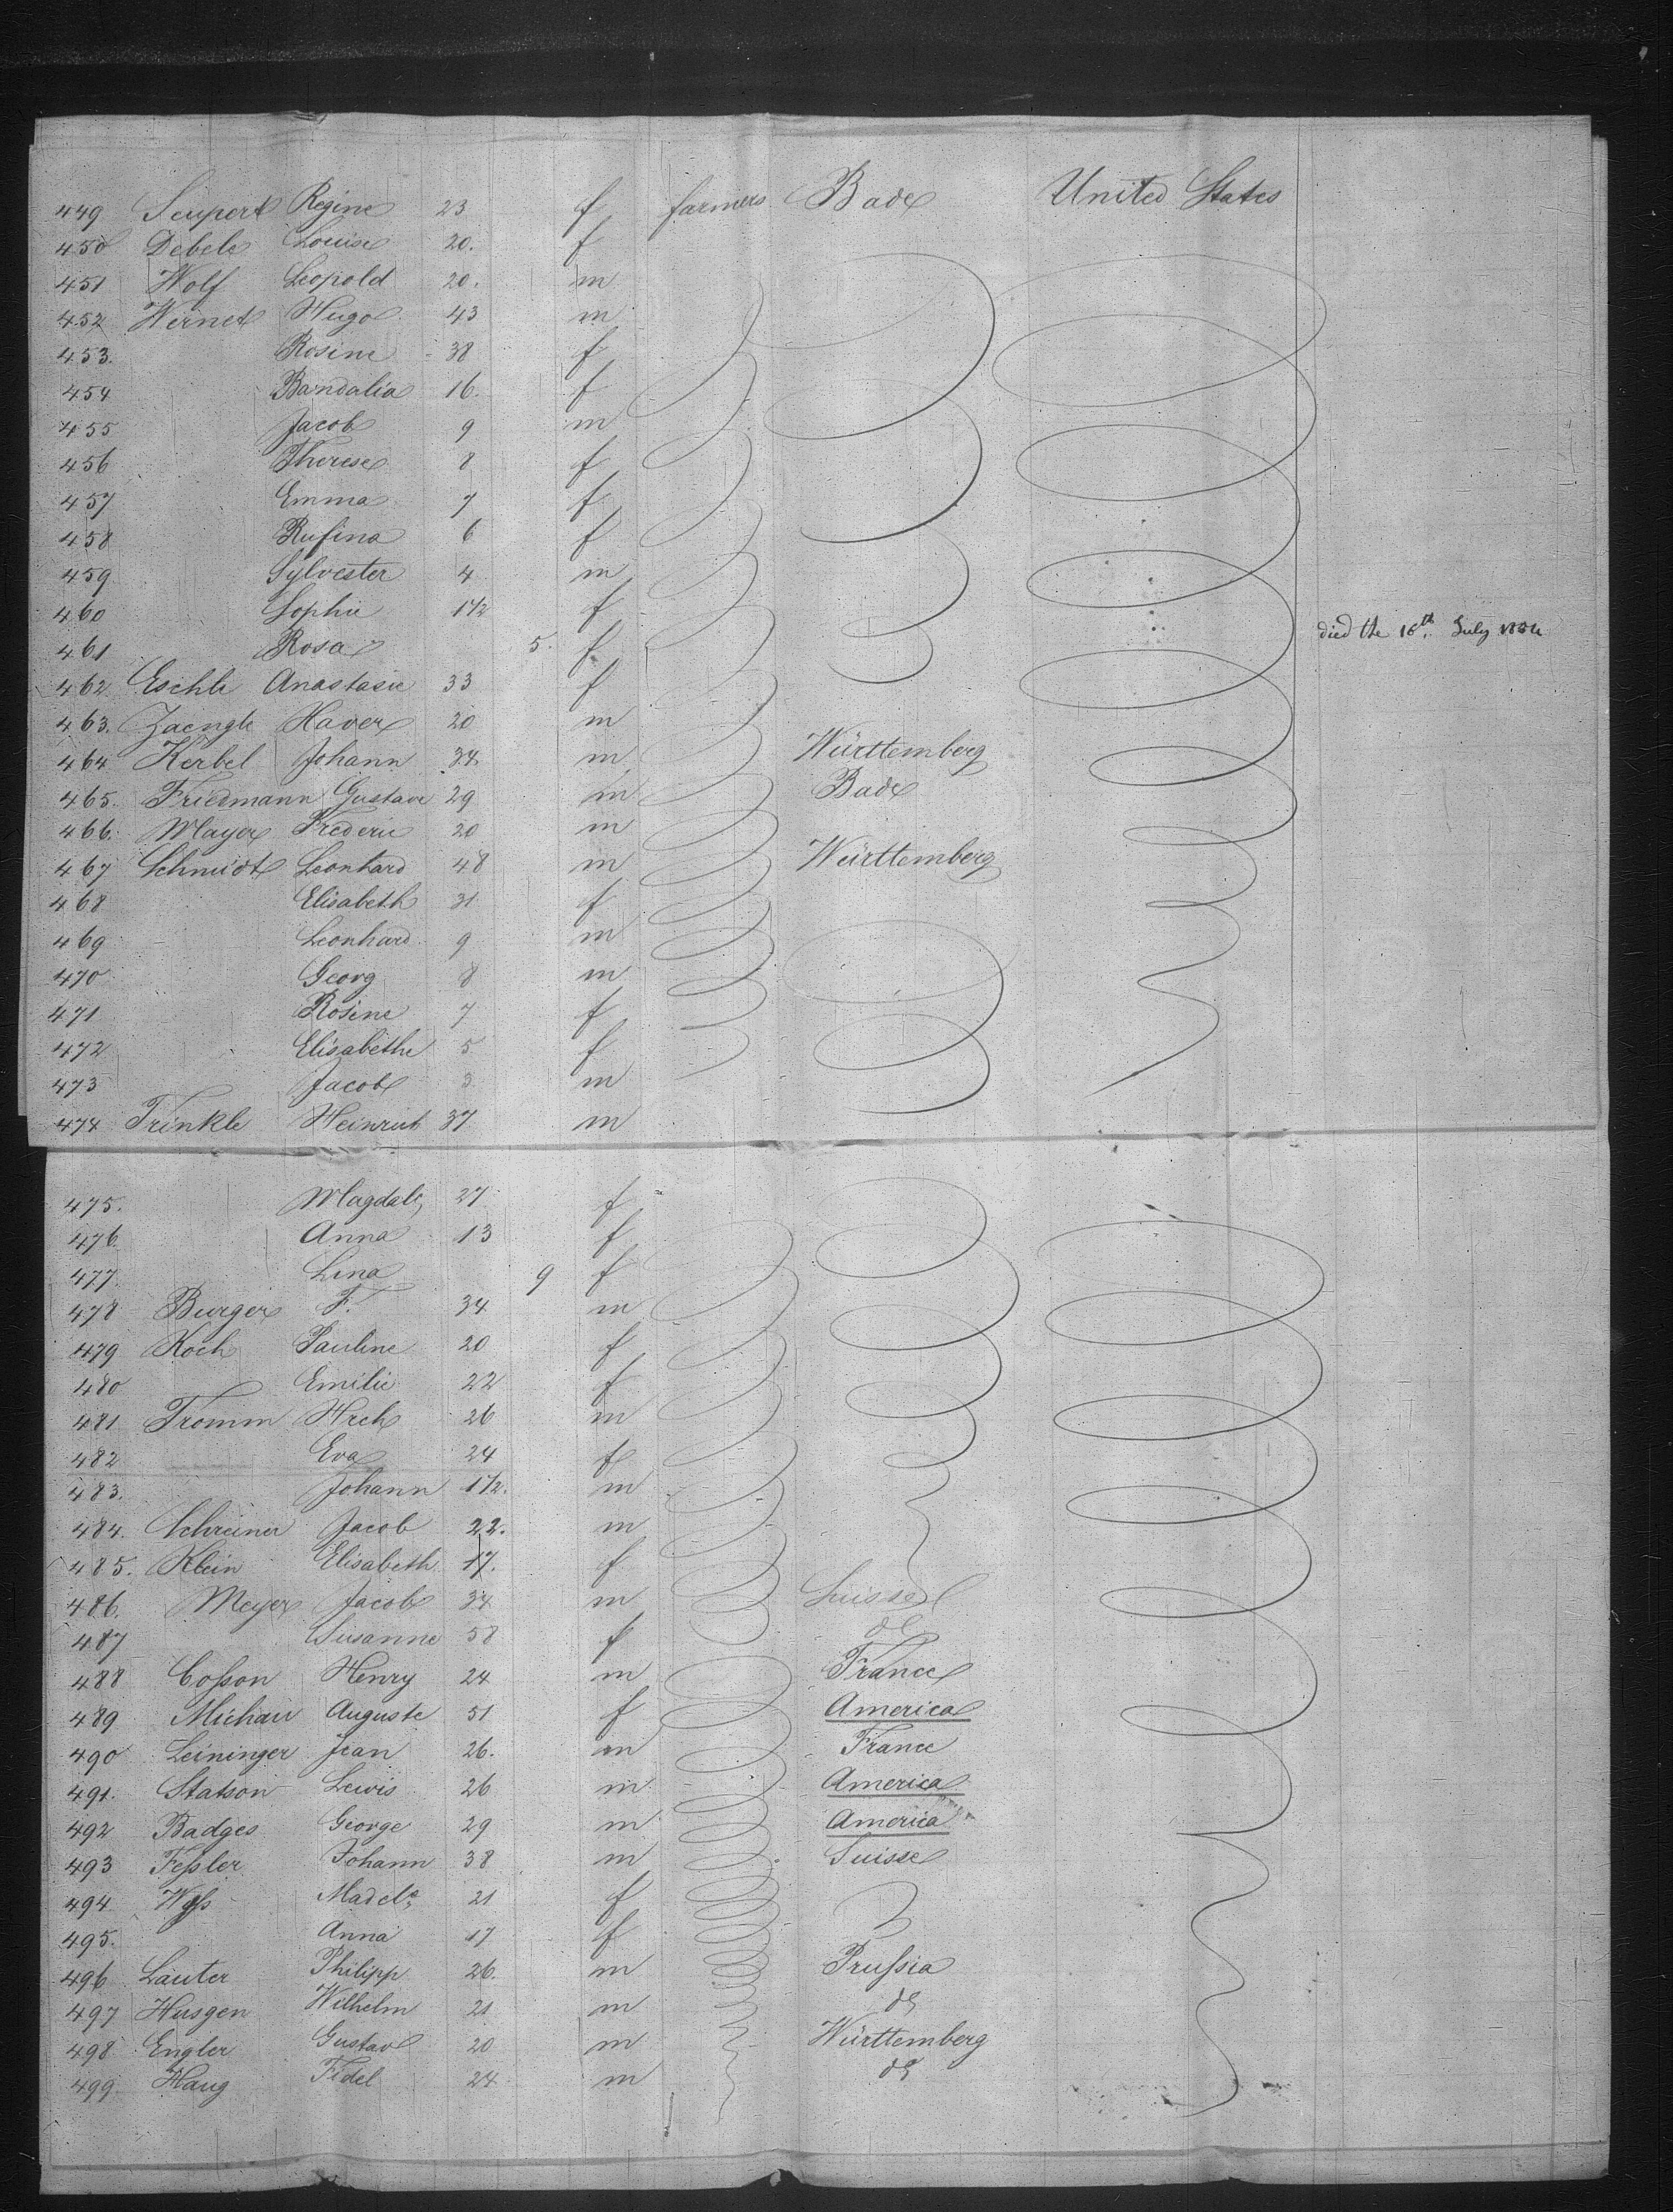 449 Seupert Regine 23 f farmers Bade United States
450 Debele Louise 20. f
451 Wolf Leopold 20. m
452 Wernet Hugo 43 m
453. Rosine 38 f
454 Bandalia 16. f
455 Jacob 9 m
456 Therese 8 f
457 Emma 7 f
458 Rufina 6 f
459 Sylvester 4 m
460 Sophie 1 1/2 f
461 Rosa 5. f died the 16th July 1854
462 Eschle Anastasie 33 f
463. Zaengle Xaver 20 m
464 Kerbel Johann 34 m Württemberg
465. Friedmann Gustave 29 m Bade
466. Mayer Frederic 20 m
467 Schmidt Leonhard 48 m Württemberg
468 Elisabeth 31 f
469 Leonhard 9 m
470 Georg 8 m
471 Rosine 7 f
472 Elisabethe 5 f
473 Jacob 3 m
474 Trinkle Heinrich 37 m
475. Magdale 27 f
476. Anna 13 f
477. Lina 9 f
478 Burger F. 34 m
479 Koch Pauline 20 f
480 Emilie 22 f
481 Tromm Hrch 26 m
482 Eva 24 f
483. Johann 1 1/2. m
484. Schreiner Jacob 22. m
485. Klein Elisabeth 17. f
486. Meyer Jacob 34 m Suisse
487 Susanne 58 f do
488 Cosson Henry 24 m France
489 Michau Auguste 51 f America
490 Leininger Jean 26. m France
491. Statson Lewis 26 m America
492 Badges George 29 m America
493 Fessler Johann 38 m Suisse
494 Wyss Madele 21 f
495. Anna 17 f
496 Lauter Philipp 26. m Prussia
497 Husgen Wilhelm 21 m do
498 Engler Gustav 20 m Württemberg
499 Haug Fidel 24 m do